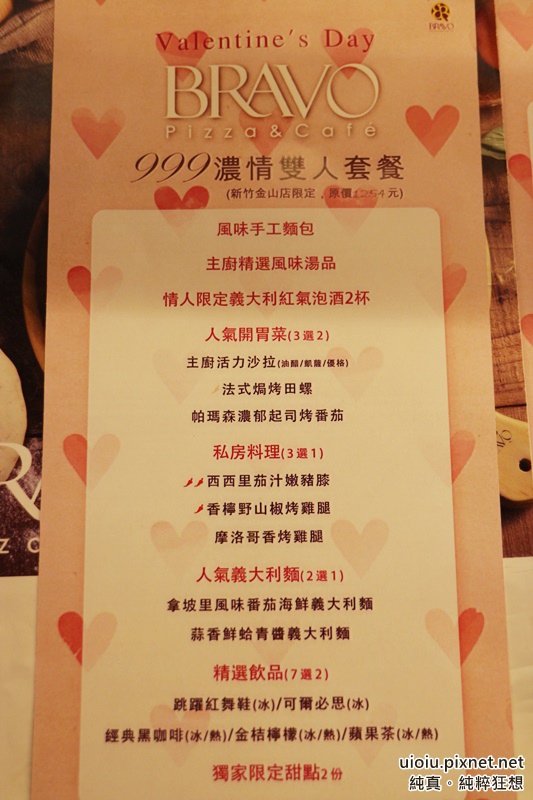 BRAVO
Valentine's Day
BRAVO
Pizza & Café
999濃情雙人套餐
(新竹金山店限定，原價1264元)
風味手工麵包
主廚精選風味湯品
情人限定義大利紅氣泡酒2杯
人氣開胃菜(3選2)
主廚活力沙拉(油醋/凱薩/優格)
法式焗烤田螺
帕瑪森濃郁起司烤番茄
私房料理(3選1)
西西里茄汁嫩豬膝
香檸野山椒烤雞腿
摩洛哥香烤雞腿
人氣義大利麵(2選1)
拿坡里風味番茄海鮮義大利麵
蒜香鮮蛤青醬義大利麵
精選飲品(7選2)
跳躍紅舞鞋(冰)/可爾必思(冰)
經典黑咖啡(冰/熱)/金桔檸檬(冰/熱)/蘋果茶(冰/熱)
獨家限定甜點2份
uioiu.pixnet.net
純真。純粹狂想